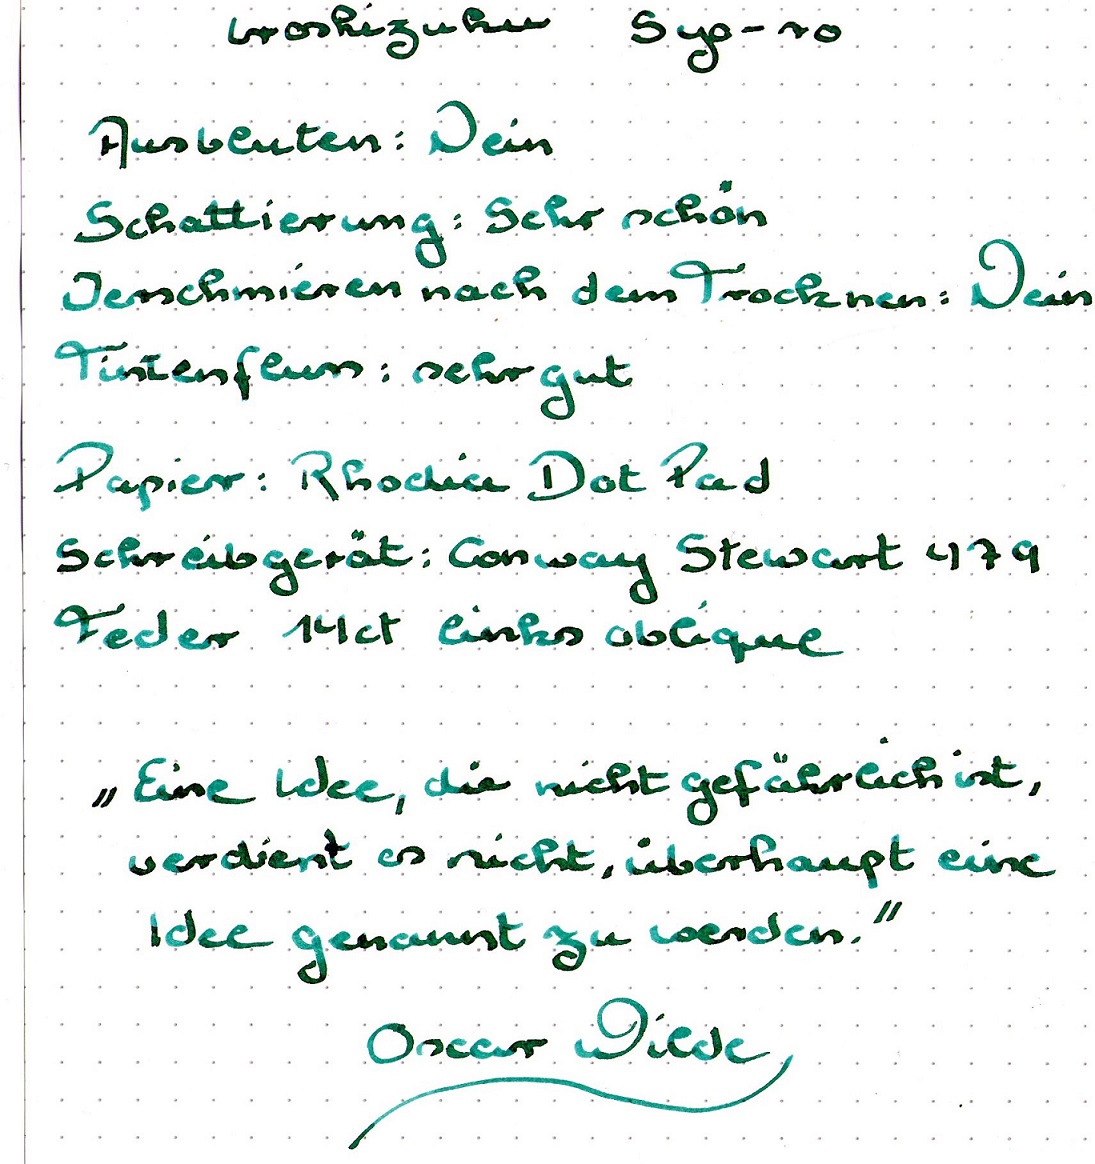 Iroshizuku Syo-ro
Ausbluten: Nein
Schattierung: Sehr schön
Verschmieren nach dem Trocknen: Nein
Tintenfluss: sehr gut
Papier: Rhodia Dot Pad
Schreibgerät: Conway Stewart 479
Feder 14ct links oblique
„Eine Idee, die nicht gefährlich ist,
verdient es nicht, überhaupt eine
Idee genannt zu werden.“
Oscar Wilde